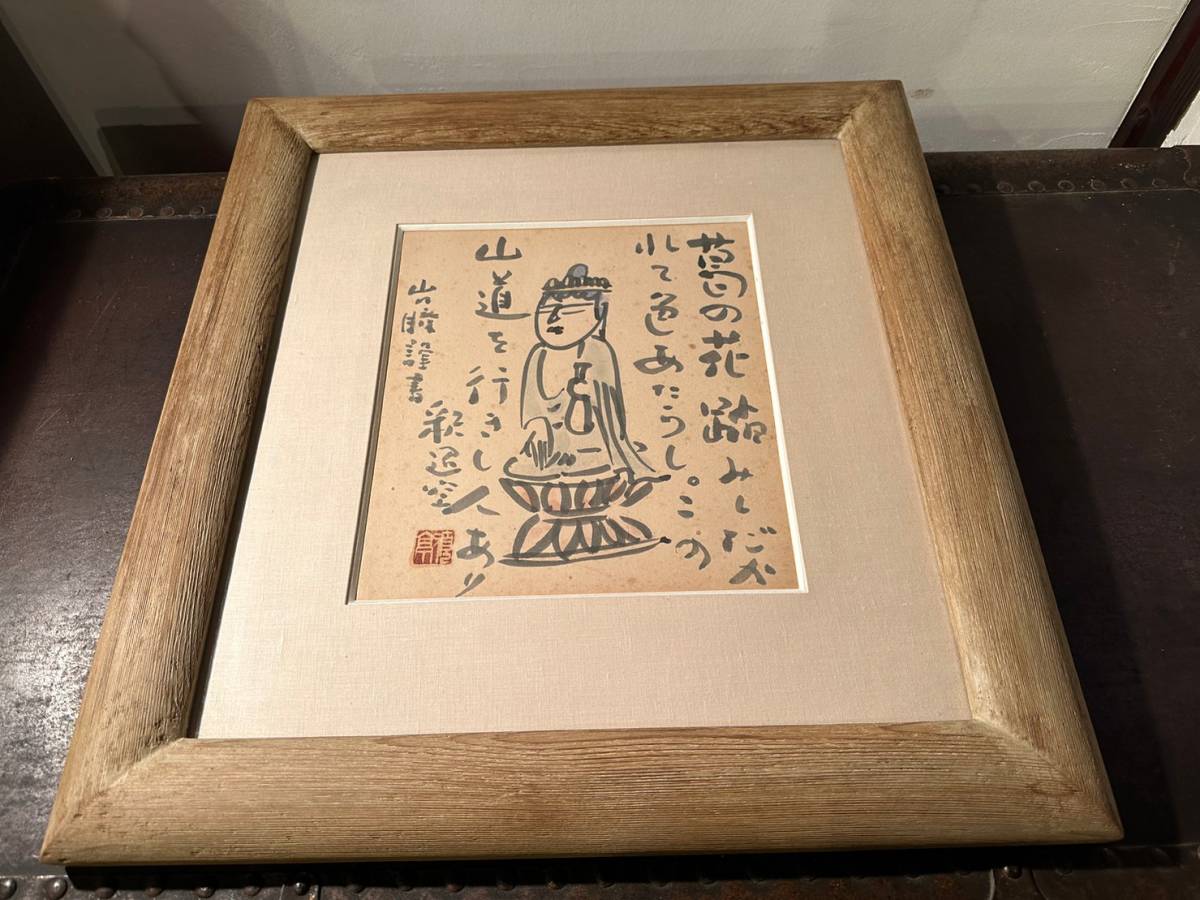 葛の花踏みしだか
れて色あたらし。この
山道を行きし人あり
釈迢空
謹書